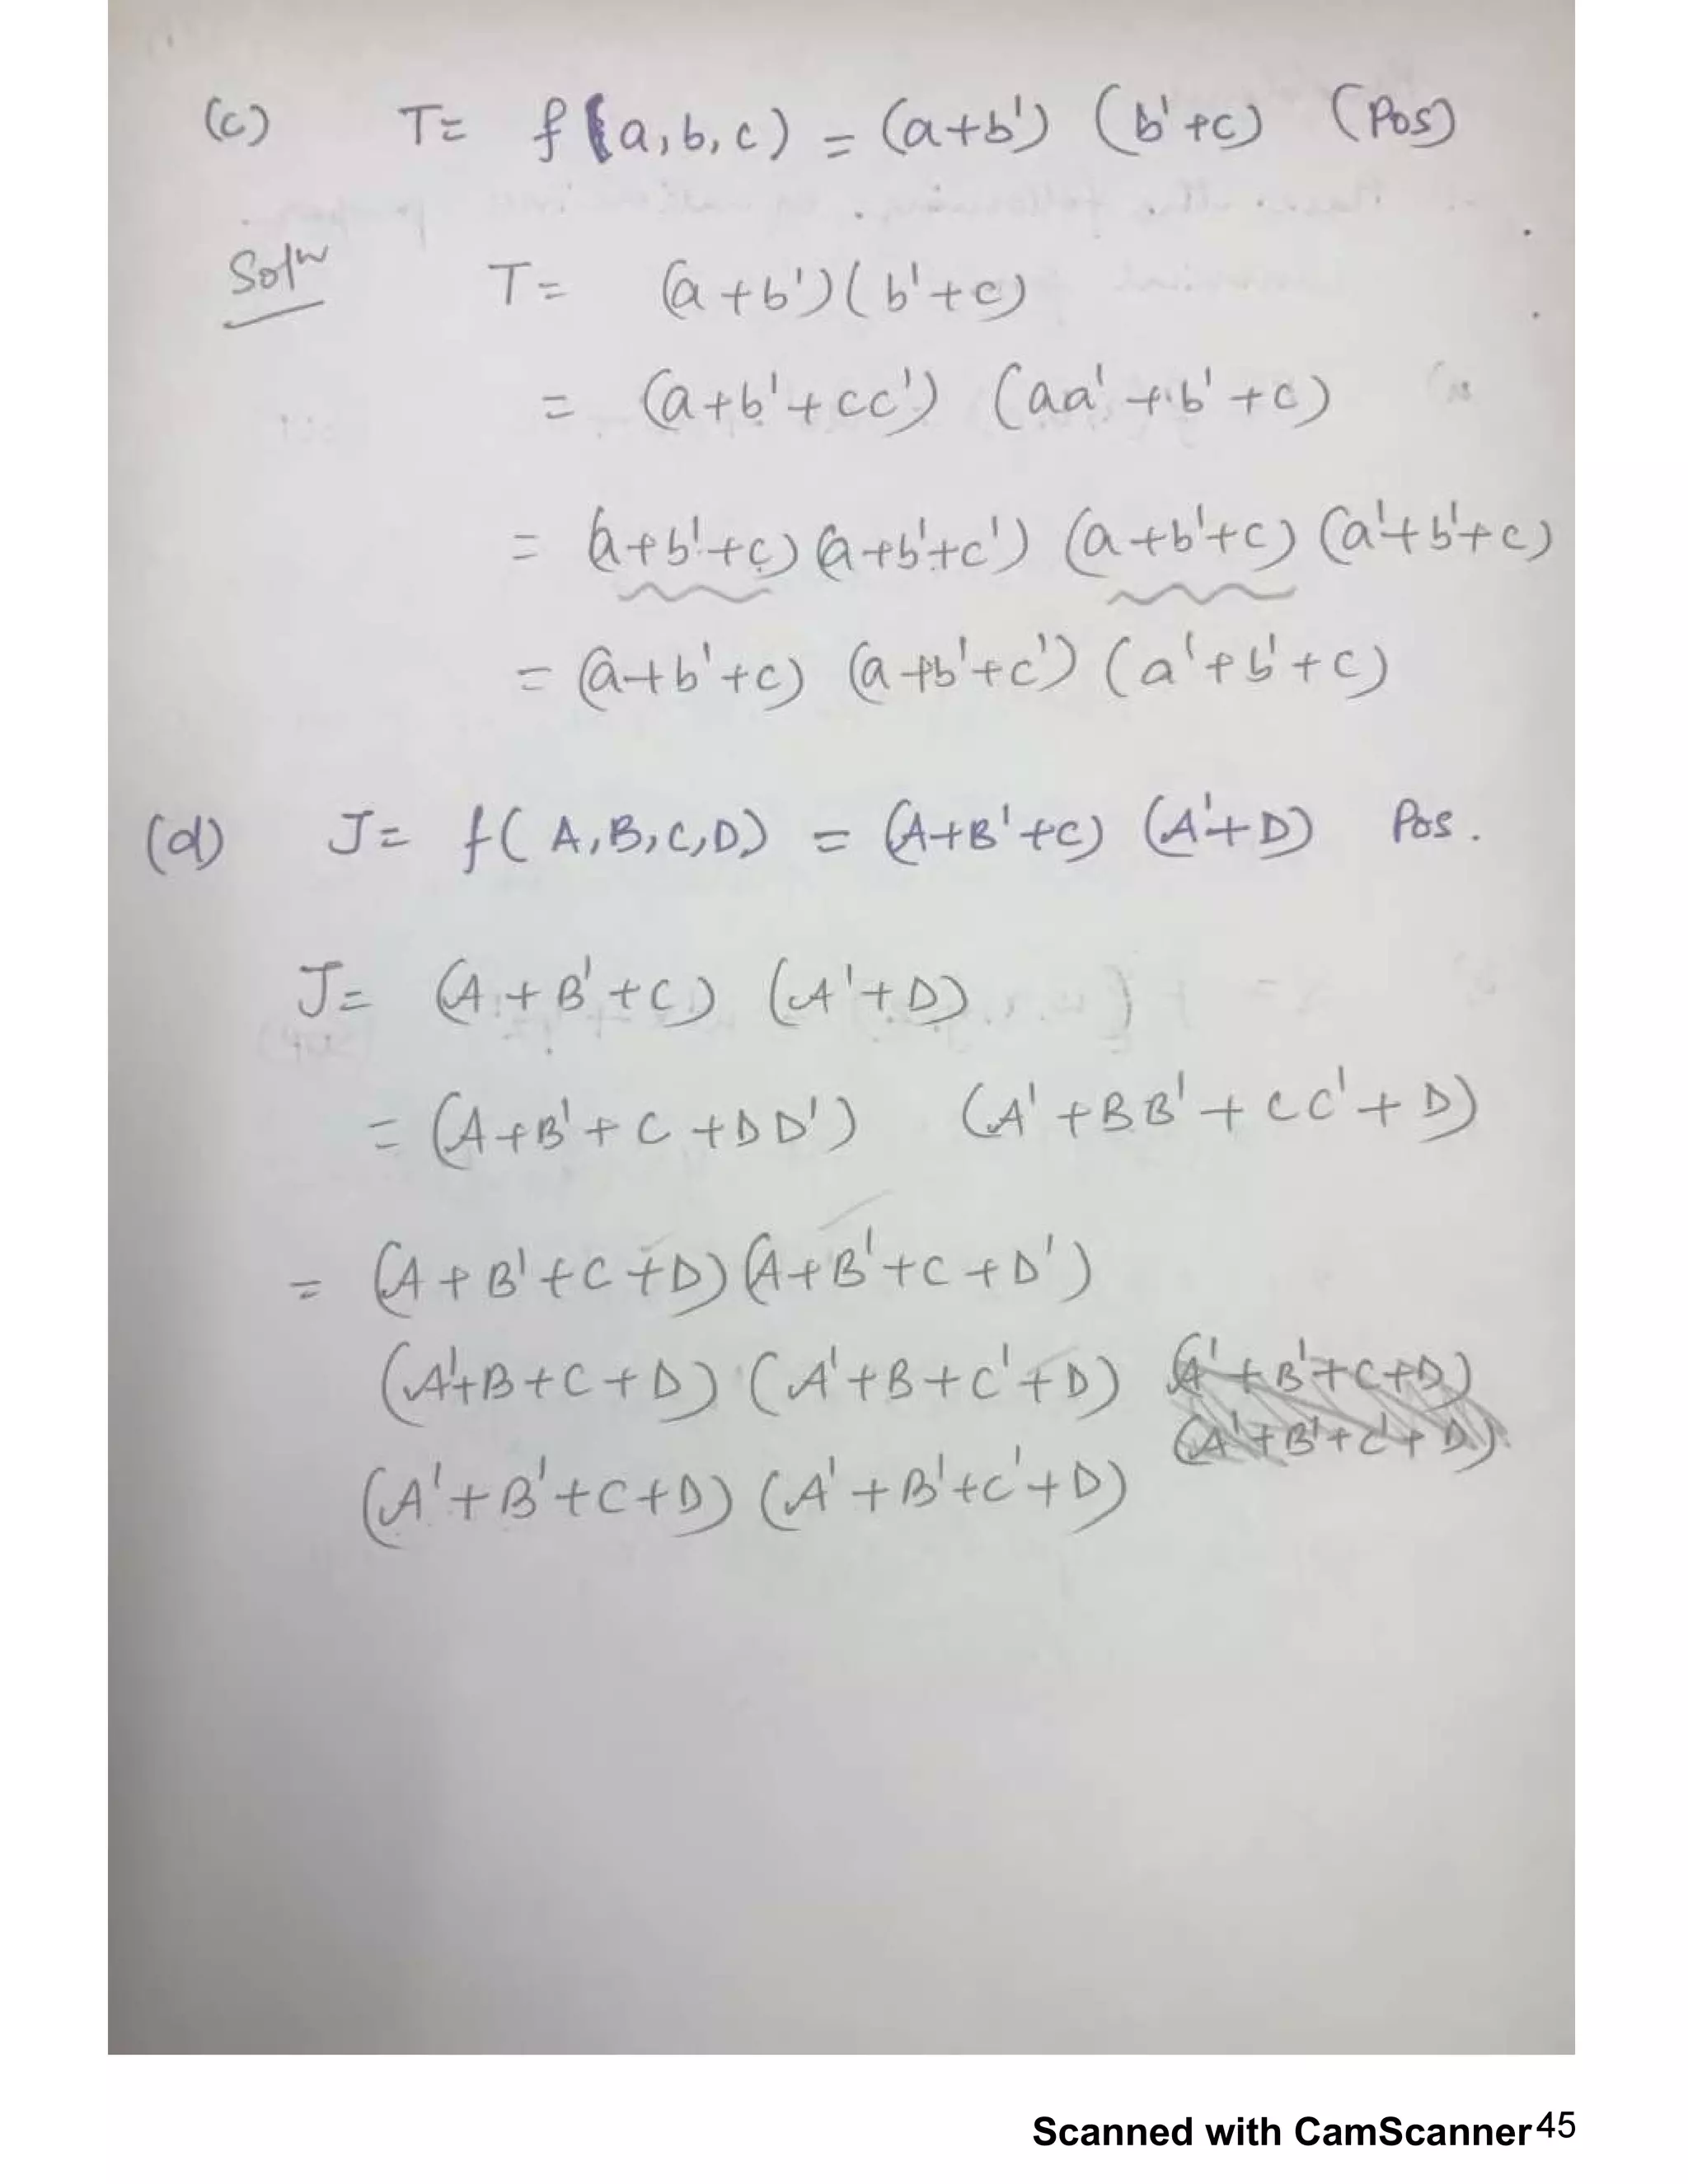 (c) T= f(a,b,c) = (a+b') (b'+c) (Pos)
Soln T= (a+b')(b'+c)
= (a+b'+cc') (aa'+b'+c)
= (a+b'+c)(a+b'+c') (a+b'+c) (a'+b'+c)
= (a+b'+c) (a+b'+c') (a'+b'+c)
(d) J= f( A,B,C,D) = (A+B'+C) (A'+D) Pos.
J= (A+B'+C) (A'+D)
= (A+B'+C+DD') (A'+BB'+CC'+D)
= (A+B'+C+D)(A+B'+C+D')
(A'+B+C+D) (A'+B+C'+D) (A'+B'+C+D)
(A'+B'+C'+D)
(A'+B'+C+D) (A'+B'+C'+D)
Scanned with CamScanner45